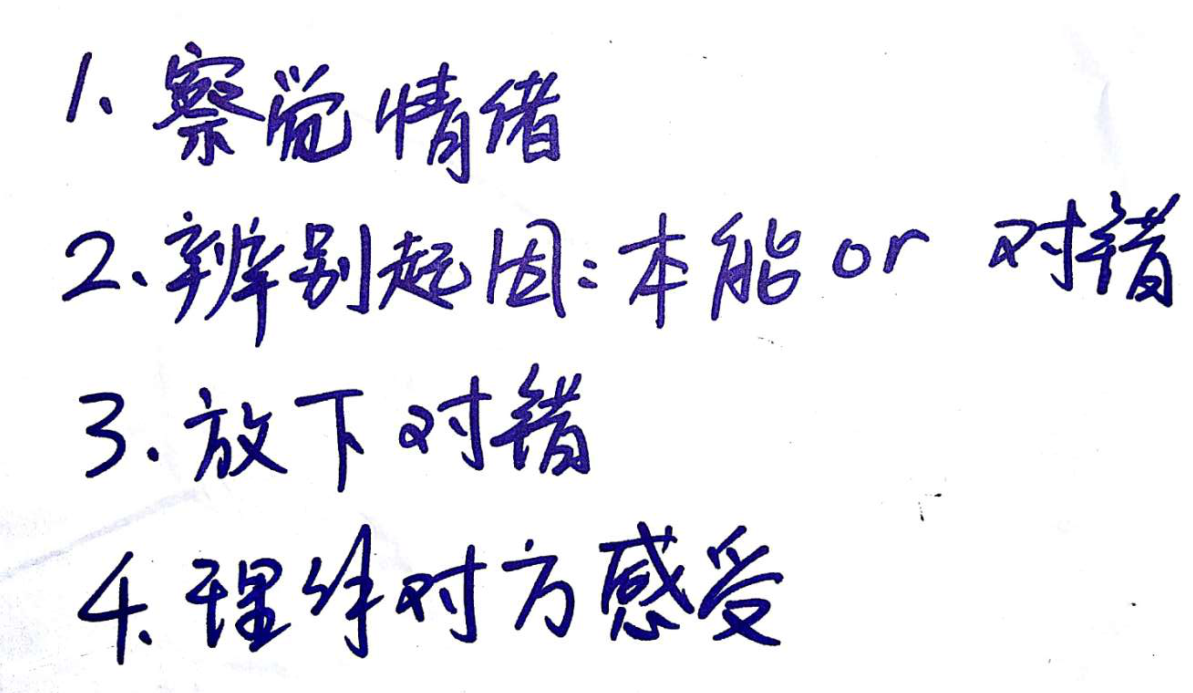 1. 察觉情绪
2. 辨别起因:本能 or 对错
3. 放下对错
4. 理解对方感受